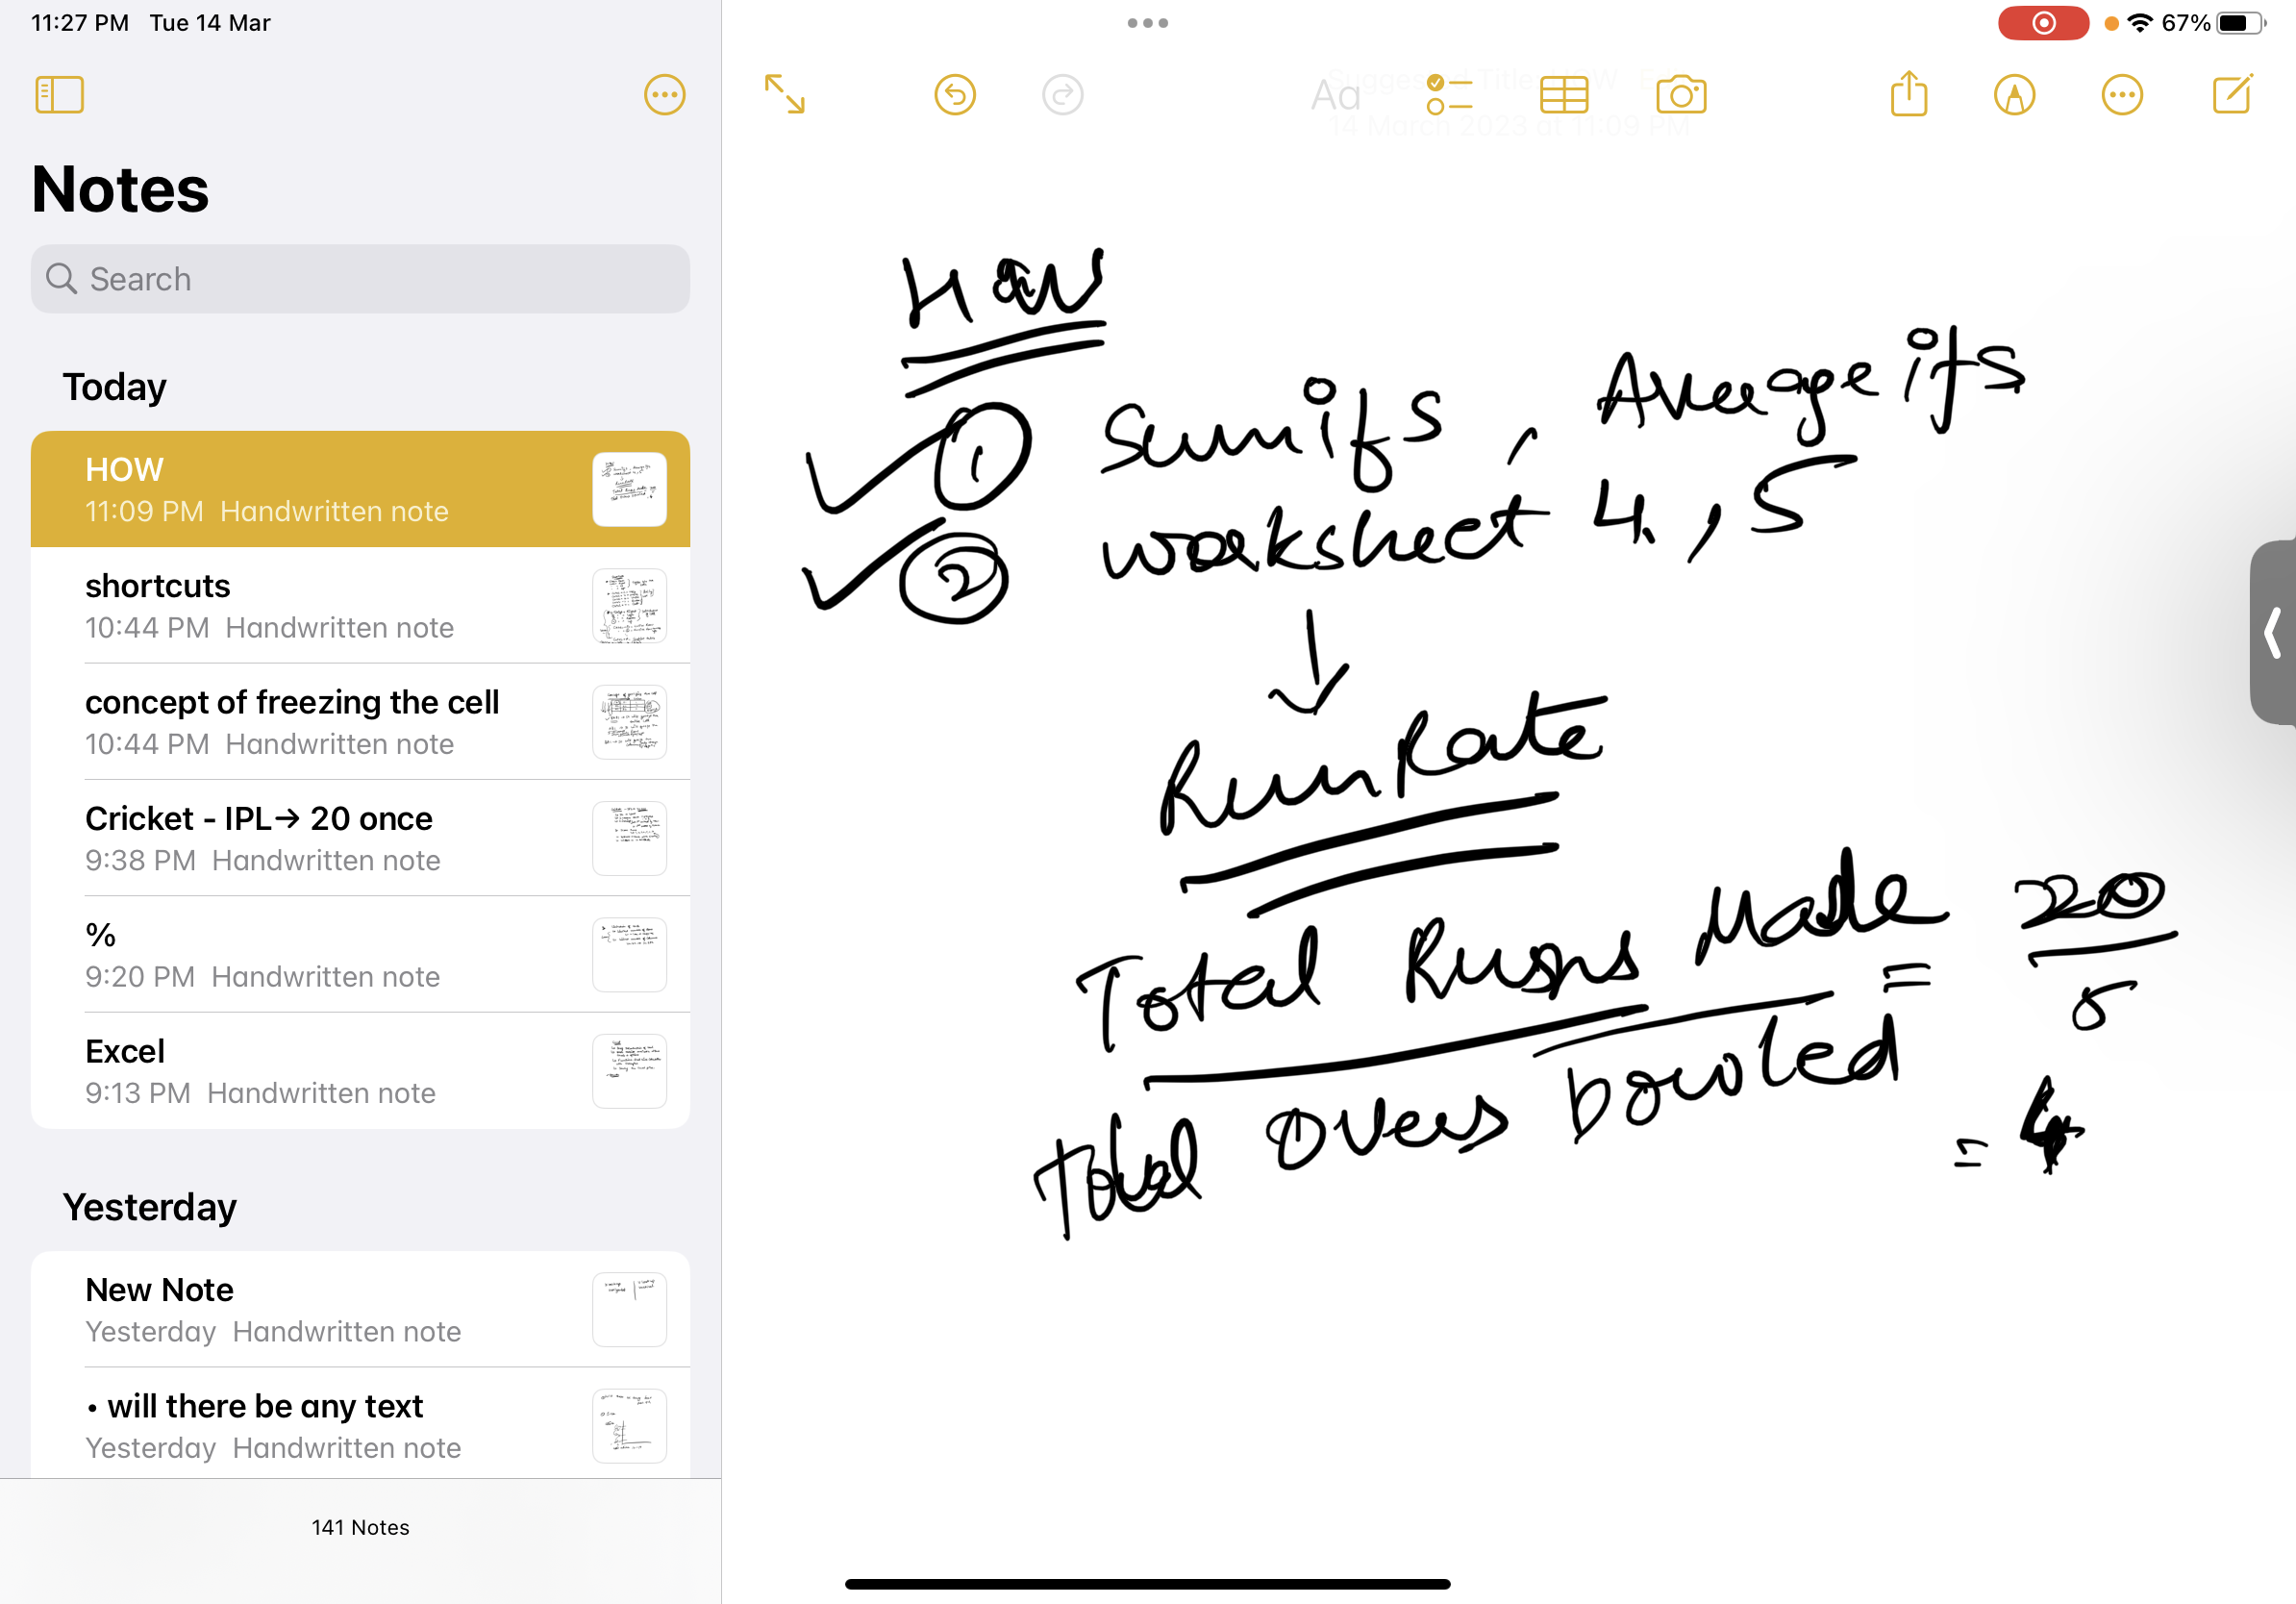 11:27 PM Tue 14 Mar
67%
Notes
Search
Today
HOW
11:09 PM Handwritten note
shortcuts
10:44 PM Handwritten note
concept of freezing the cell
10:44 PM Handwritten note
Cricket - IPL→ 20 once
9:38 PM Handwritten note
%
9:20 PM Handwritten note
Excel
9:13 PM Handwritten note
Yesterday
New Note
Yesterday Handwritten note
• will there be any text
Yesterday Handwritten note
141 Notes
Aa
Suggested Title: HOW
14 March 2023 at 11:09 PM
HOW
① Sumifs, Averageifs
② worksheet 4, 5
↓
Run Rate
Total Runs Made = 20
Total Overs bowled 5
= 4